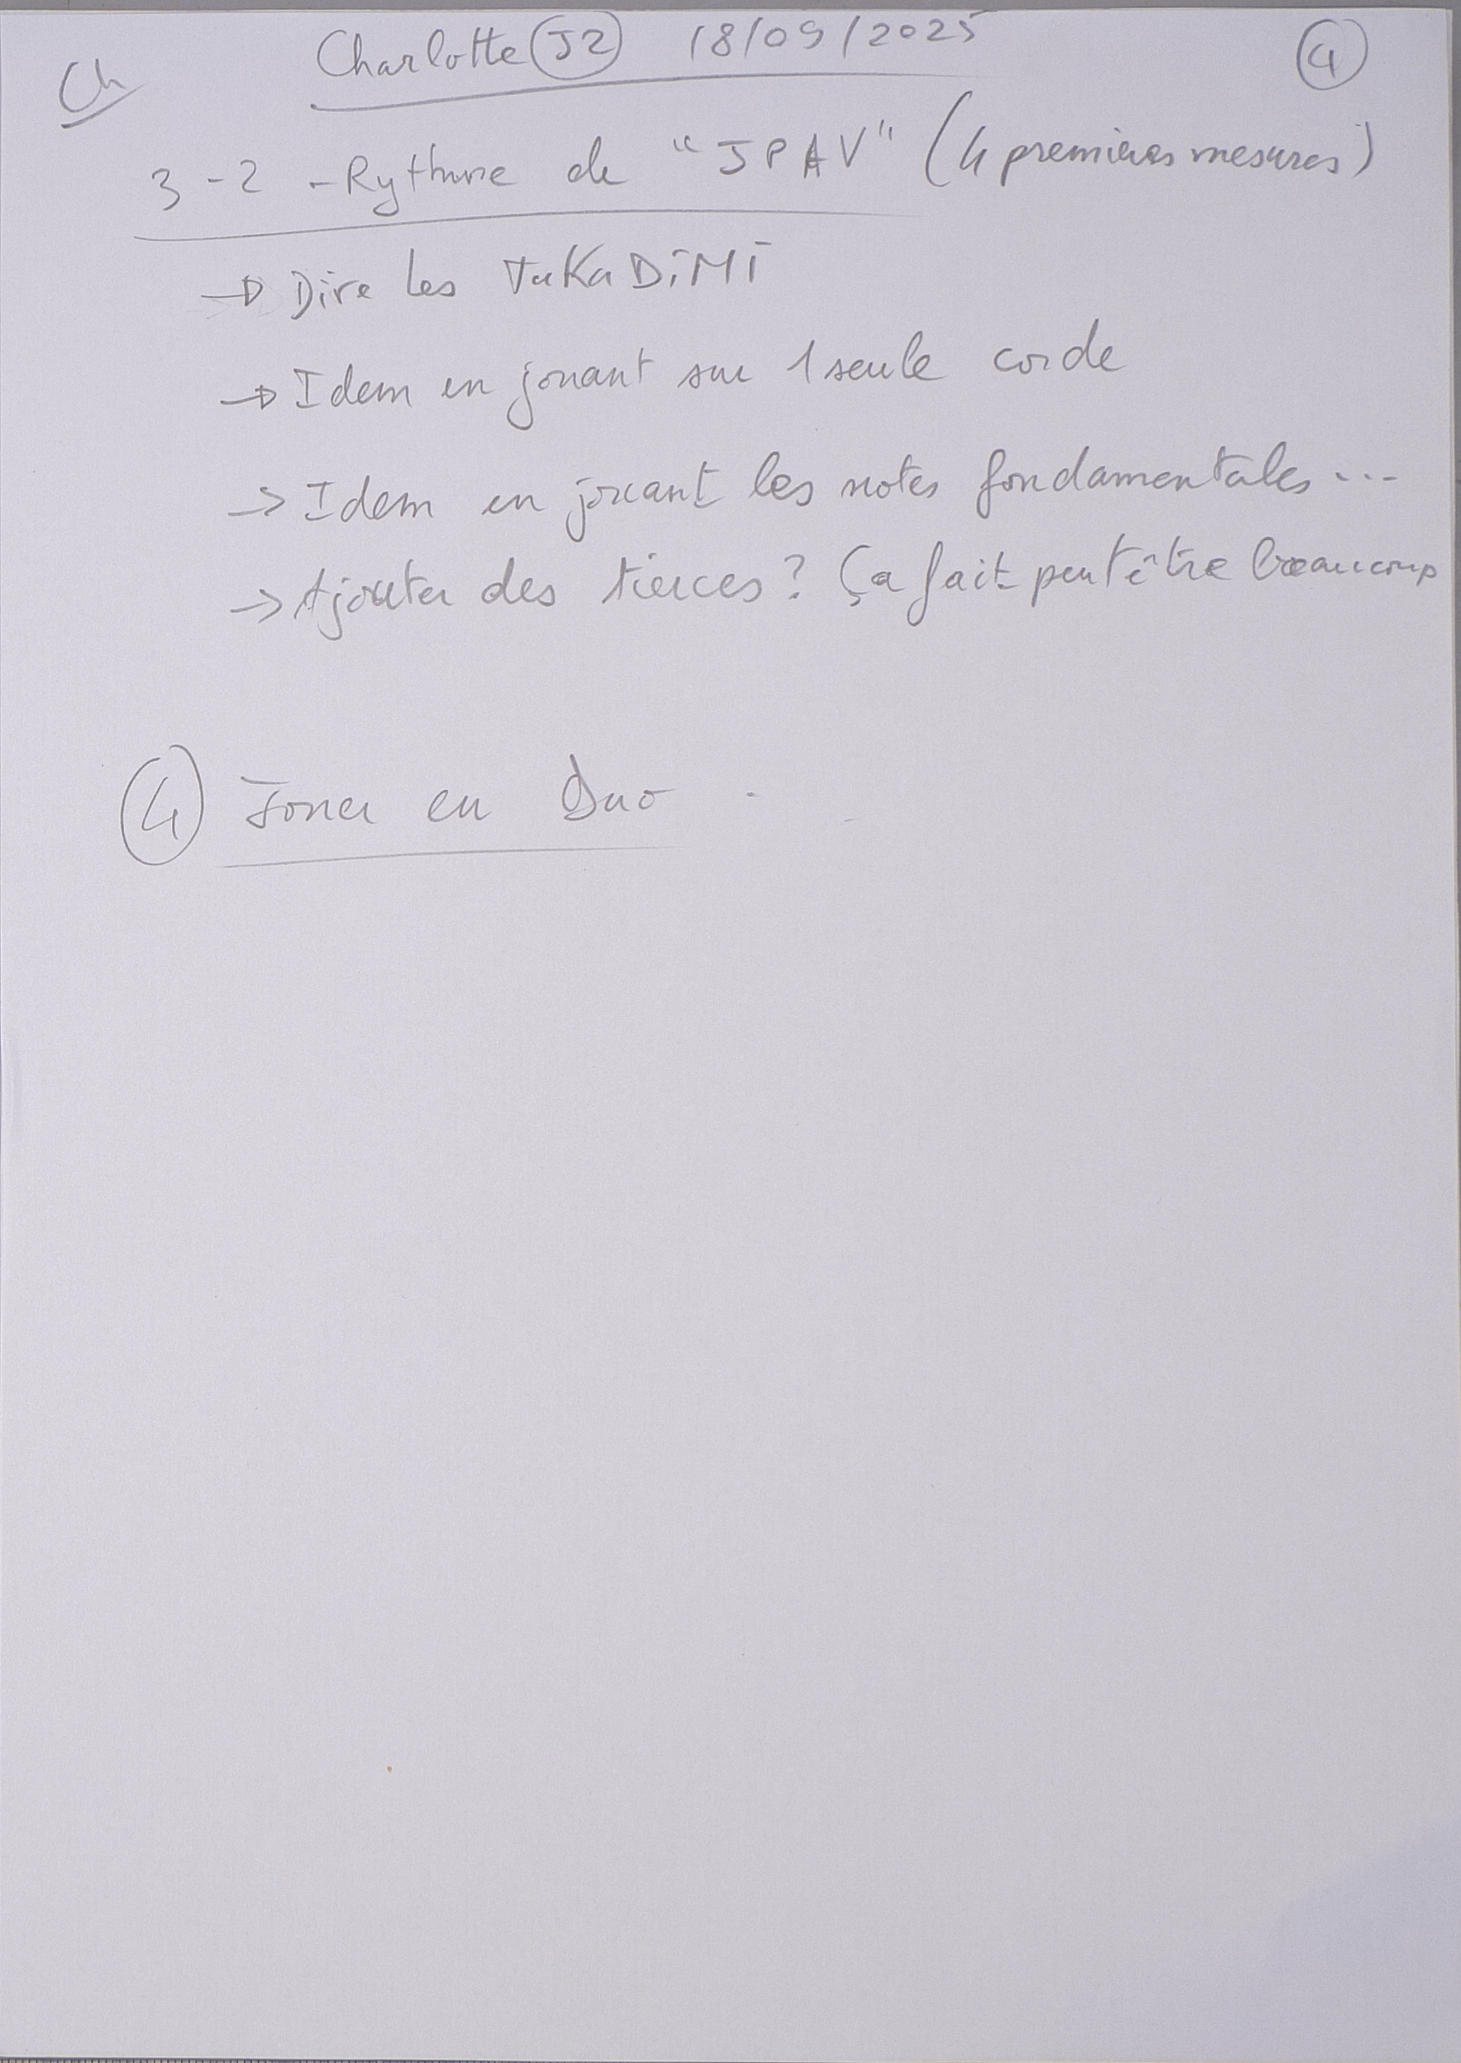 Ch
Charlotte J2 18/09/2025
4
3-2 - Rythme de "JPAV" (4 premières mesures)
→ Dire les TaKaDiMi
→ Idem en jouant sur 1 seule corde
→ Idem en jouant les notes fondamentales...
→ Ajouter des tierces? Ça fait peut être beaucoup
4 Jouer en Duo.